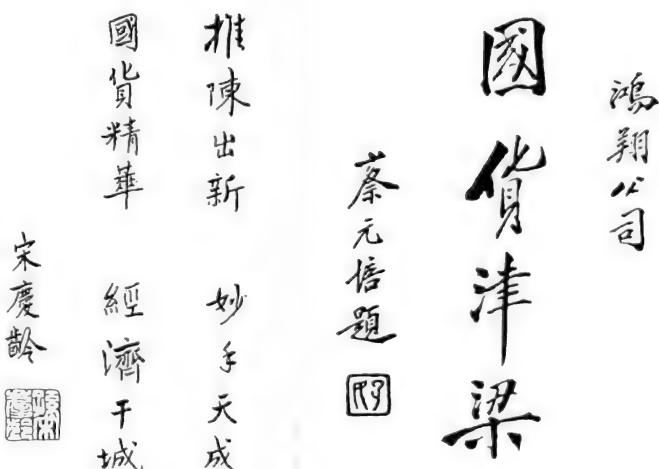 鴻翔公司
國貨津梁
蔡元培題
推陳出新 妙手天成
國貨精華 經濟干城
宋慶齡